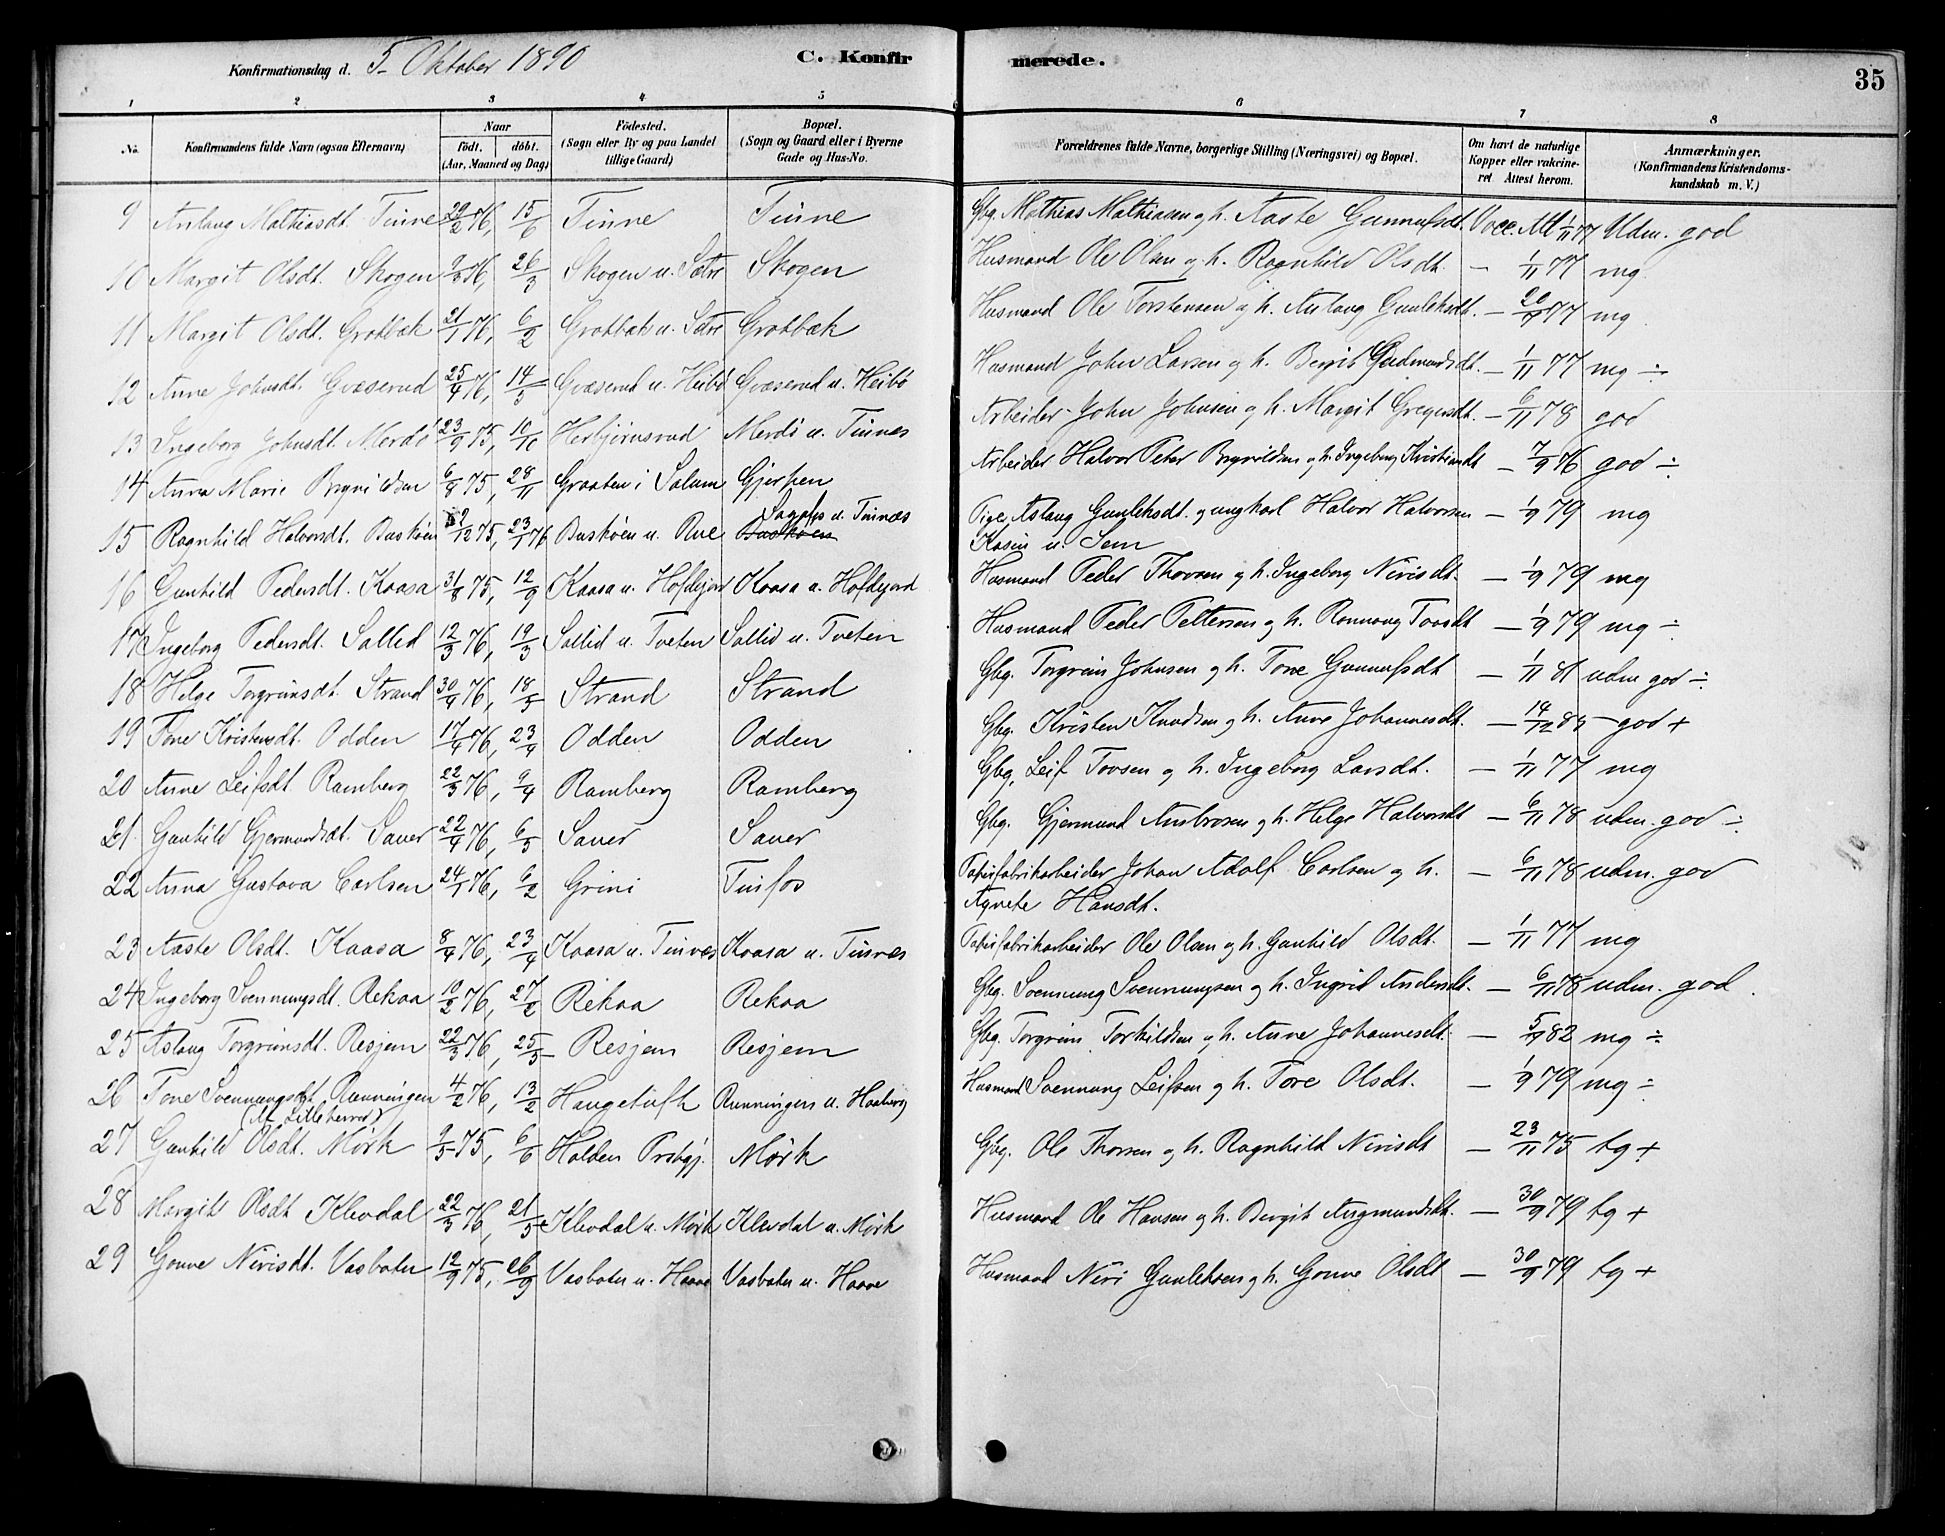 Konfirmationsdag d. 5. Oktober 1890 C. Konfirmerede. 35
1 2 3 4 5 6 7 8
No. Konfirmandens fulde Navn (ogsaa Efternavn) Naar født. døbt. (Aar, Maaned og Dag) Fødested. (Sogn eller By og paa Landet tillige Gaard) Bopæl. (Sogn og Gaard eller i Byerne Gade og Hus-No. Forældrenes fulde Navne, borgerlige Stilling (Næringsvei) og Bopæl. Om havt de naturlige Kopper eller vakcineret. Attest herom. Anmærkninger. (Konfirmandens Kristendomskundskab m. V.)
9 Aslaug Mathiasdt. Tinne 20/2 76, 15/6 Tinne Tinne Gbg. Mathias Mathiasen og h. Aaste Gunnufsdt. Vacc. Att 1/11 77 Udm. god
10 Margit Olsdt. Skogen 9/3 76, 26/3 Skogen u. Sætre Skogen Husmand Ole Olsen og h. Ragnhild Olsdt. — 1/11 77 mg.
11 Margit Olsdt. Grotbæk 21/1 76, 6/2 Grotbæk u. Sætre Grotbæk Husmand Ole Torstensen og h. Aslaug Gunleksdt. — 20/9 77 mg.
12 Anne Johnsdt. Gvæserud 25/4 76, 14/5 Gvæserud u. Heibø Gvæserud u. Heibø Husmand John Larsen og h. Bergit Gudmundsdt. — 1/11 77 mg ÷
13 Ingeborg Johnsdt. Merdø 23/9 75, 10/10 Herbjørnsrud Merdø u. Tinnes Arbeider John Johnsen og h. Margit Gregersdt. — 6/11 78 god
14 Anna Marie Brynildsen 6/8 75, 28/11 Graaten i Solum Gjerpen Arbeider Halvor Peter Brynildsen og h. Ingeborg Kristiansdt — 7/9 76 god ÷
15 Ragnhild Halvorsdt. Buskøen /12 75, 23/1 76 Buskøen u. Rue Sagafos u. Tinnæs Buskøen Pige Aslaug Gunleksdt. og ungkarl Halvor Halvorsen — 1/9 79 mg
Kasin u. Sem
16 Gunhild Pedersdt. Kaasa 31/8 75, 12/9 Kaasa u. Hofdejord Kaasa u. Hofdejord Husmand Peder Thovsen og h. Ingeborg Nirisdt. — 1/9 79 mg
17 Ingeborg Pedersdt. Sollid 12/3 76, 19/3 Sollid u. Tveten Sollid u. Tveten Husmand Peder Pettersen og h. Ronnaug Tovsdt — 1/9 79 mg ÷
18 Helge Torgrimsdt. Strand 30/4 76, 18/5 Strand Strand Gbg. Torgrim Johnsen og h. Tone Gunnufsdt — 1/11 81 udm god ÷
19 Tone Kristensdt. Odden 17/4 76, 23/4 Odden Odden Gbg. Kristen Knudsen og h. Anne Johannesdt. — 14/12 85 — god +
20 Anne Leifsdt. Ramberg 22/3 76, 9/4 Ramberg Ramberg Gbg. Leif Tovsen og h. Ingeborg Larsdt. — 1/11 77 mg
21 Gunhild Gjermundsdt. Sauer 22/4 76, 6/5 Sauer Sauer Gbg. Gjermund Ambrosen og h. Helge Halvorsdt — 6/11 78 udm. god ÷
22 Anna Gustava Carlsen 24/1 76, 6/2 Grini Tinfos Papirfabrikarbeider Johan Adolf Carlsen og h. — 6/11 78 udm. god
Agnete Hansdt.
23 Aaste Olsdt. Kaasa 8/4 76, 23/4 Kaasa u. Tinnæs Kaasa u. Tinnæs Papirfabrikarbeider Ole Olsen og h. Gunhild Olsdt. — 1/11 77 mg
24 Ingeborg Svennungsdt. Rekaa 10/2 76, 27/2 Rekaa Rekaa Gbg. Svennung Svennungsen og h. Ingrid Andersdt. — 6/11 78 udm. god
25 Aslaug Torgrimsdt. Resjem 22/3 76, 25/5 Resjem Resjem Gbg. Torgrim Torkildsen og h. Anne Johannesdt. — 5/9 82 mg ÷
26 Tone Svennungsdt. Rønningen 4/2 76, 13/2 Haugetuft Rønningen u. Haaberg Husmand Svennung Leifsen og h. Tore Olsdt. — 1/9 79 mg ÷
(Af Lilleherred)
27 Gunhild Olsdt. Mørk 9/5 75, 6/6 Holden Prstgj. Mørk Gbg. Ole Thorsen og h. Ragnhild Nirisdt — 23/11 75 tg +
28 Margit Olsdt Klevdal 22/3 76, 21/5 Klevdal u. Mørk Klevdal u. Mørk Husmand Ole Hansen og h. Bergit Augmundsdt. — 30/9 79 tg +
29 Gonne Nirisdt. Vasboten 12/9 75, 26/9 Vasboten u. Haave Vasboten u. Haave Husmand Niri Gunleksen og h. Gonne Olsdt — 30/9 79 tg +